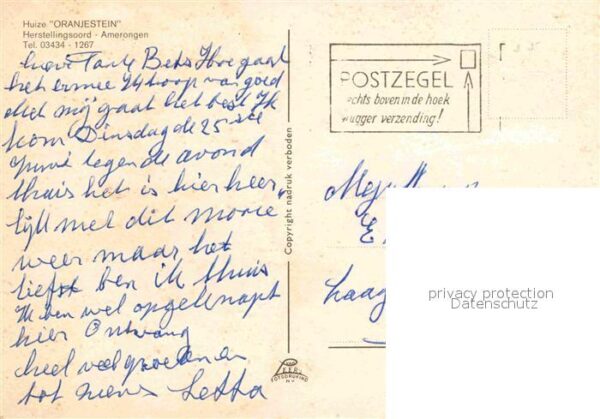 Huize "ORANJESTEIN"
Herstellingsoord - Amerongen
Tel. 03434 - 1267
Lieve Tante Bets Hoe gaat
het ermee Ik hoop van goed
met mij gaat het best Ik
kom Dinsdag de 25 ste
tegen de avond
thuis het is hier heer
lijk met dit mooie
weer maar het
liefst ben ik thuis
Ik ben wel opgeknapt
hier Ontvang
heel veel groeten en
tot ziens Letta
Copyright nadruk verboden
POSTZEGEL
rechts boven in de hoek
vlugger verzending!
Mej
E
Laag
privacy protection
Datenschutz
FOTODRUKIND
N.V.